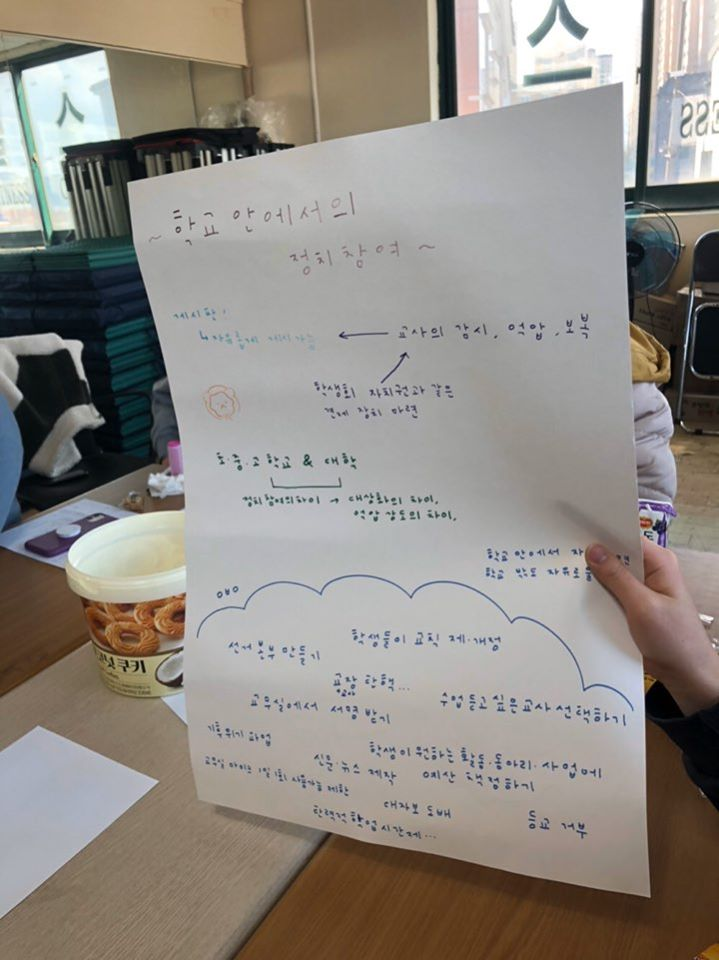 ~ 학교 안에서의
정치참여 ~
게시판!
↳ 자유롭게 게시 가능
← 교사의 감시, 억압, 보복
학생회 자치권과 같은
견제 장치 마련
초·중·고 학교 & 대학
정치참여의 차이 → 대상화의 차이,
억압 강도의 차이,
학교 안에서
학교 밖도
선거 본부 만들기
학생들이 교칙 제·개정
교장 탄핵...
교무실에서 서명 받기
수업 듣고 싶은 교사 선택하기
기후위기 파업
학생이 원하는 활동·동아리·사업에
예산 책정하기
신문·뉴스 제작
교무실 마이크 1일 1회 사용가능 제한
대자보 도배
등교 거부
탄력적 학업시간제...
넛 쿠키
ESS